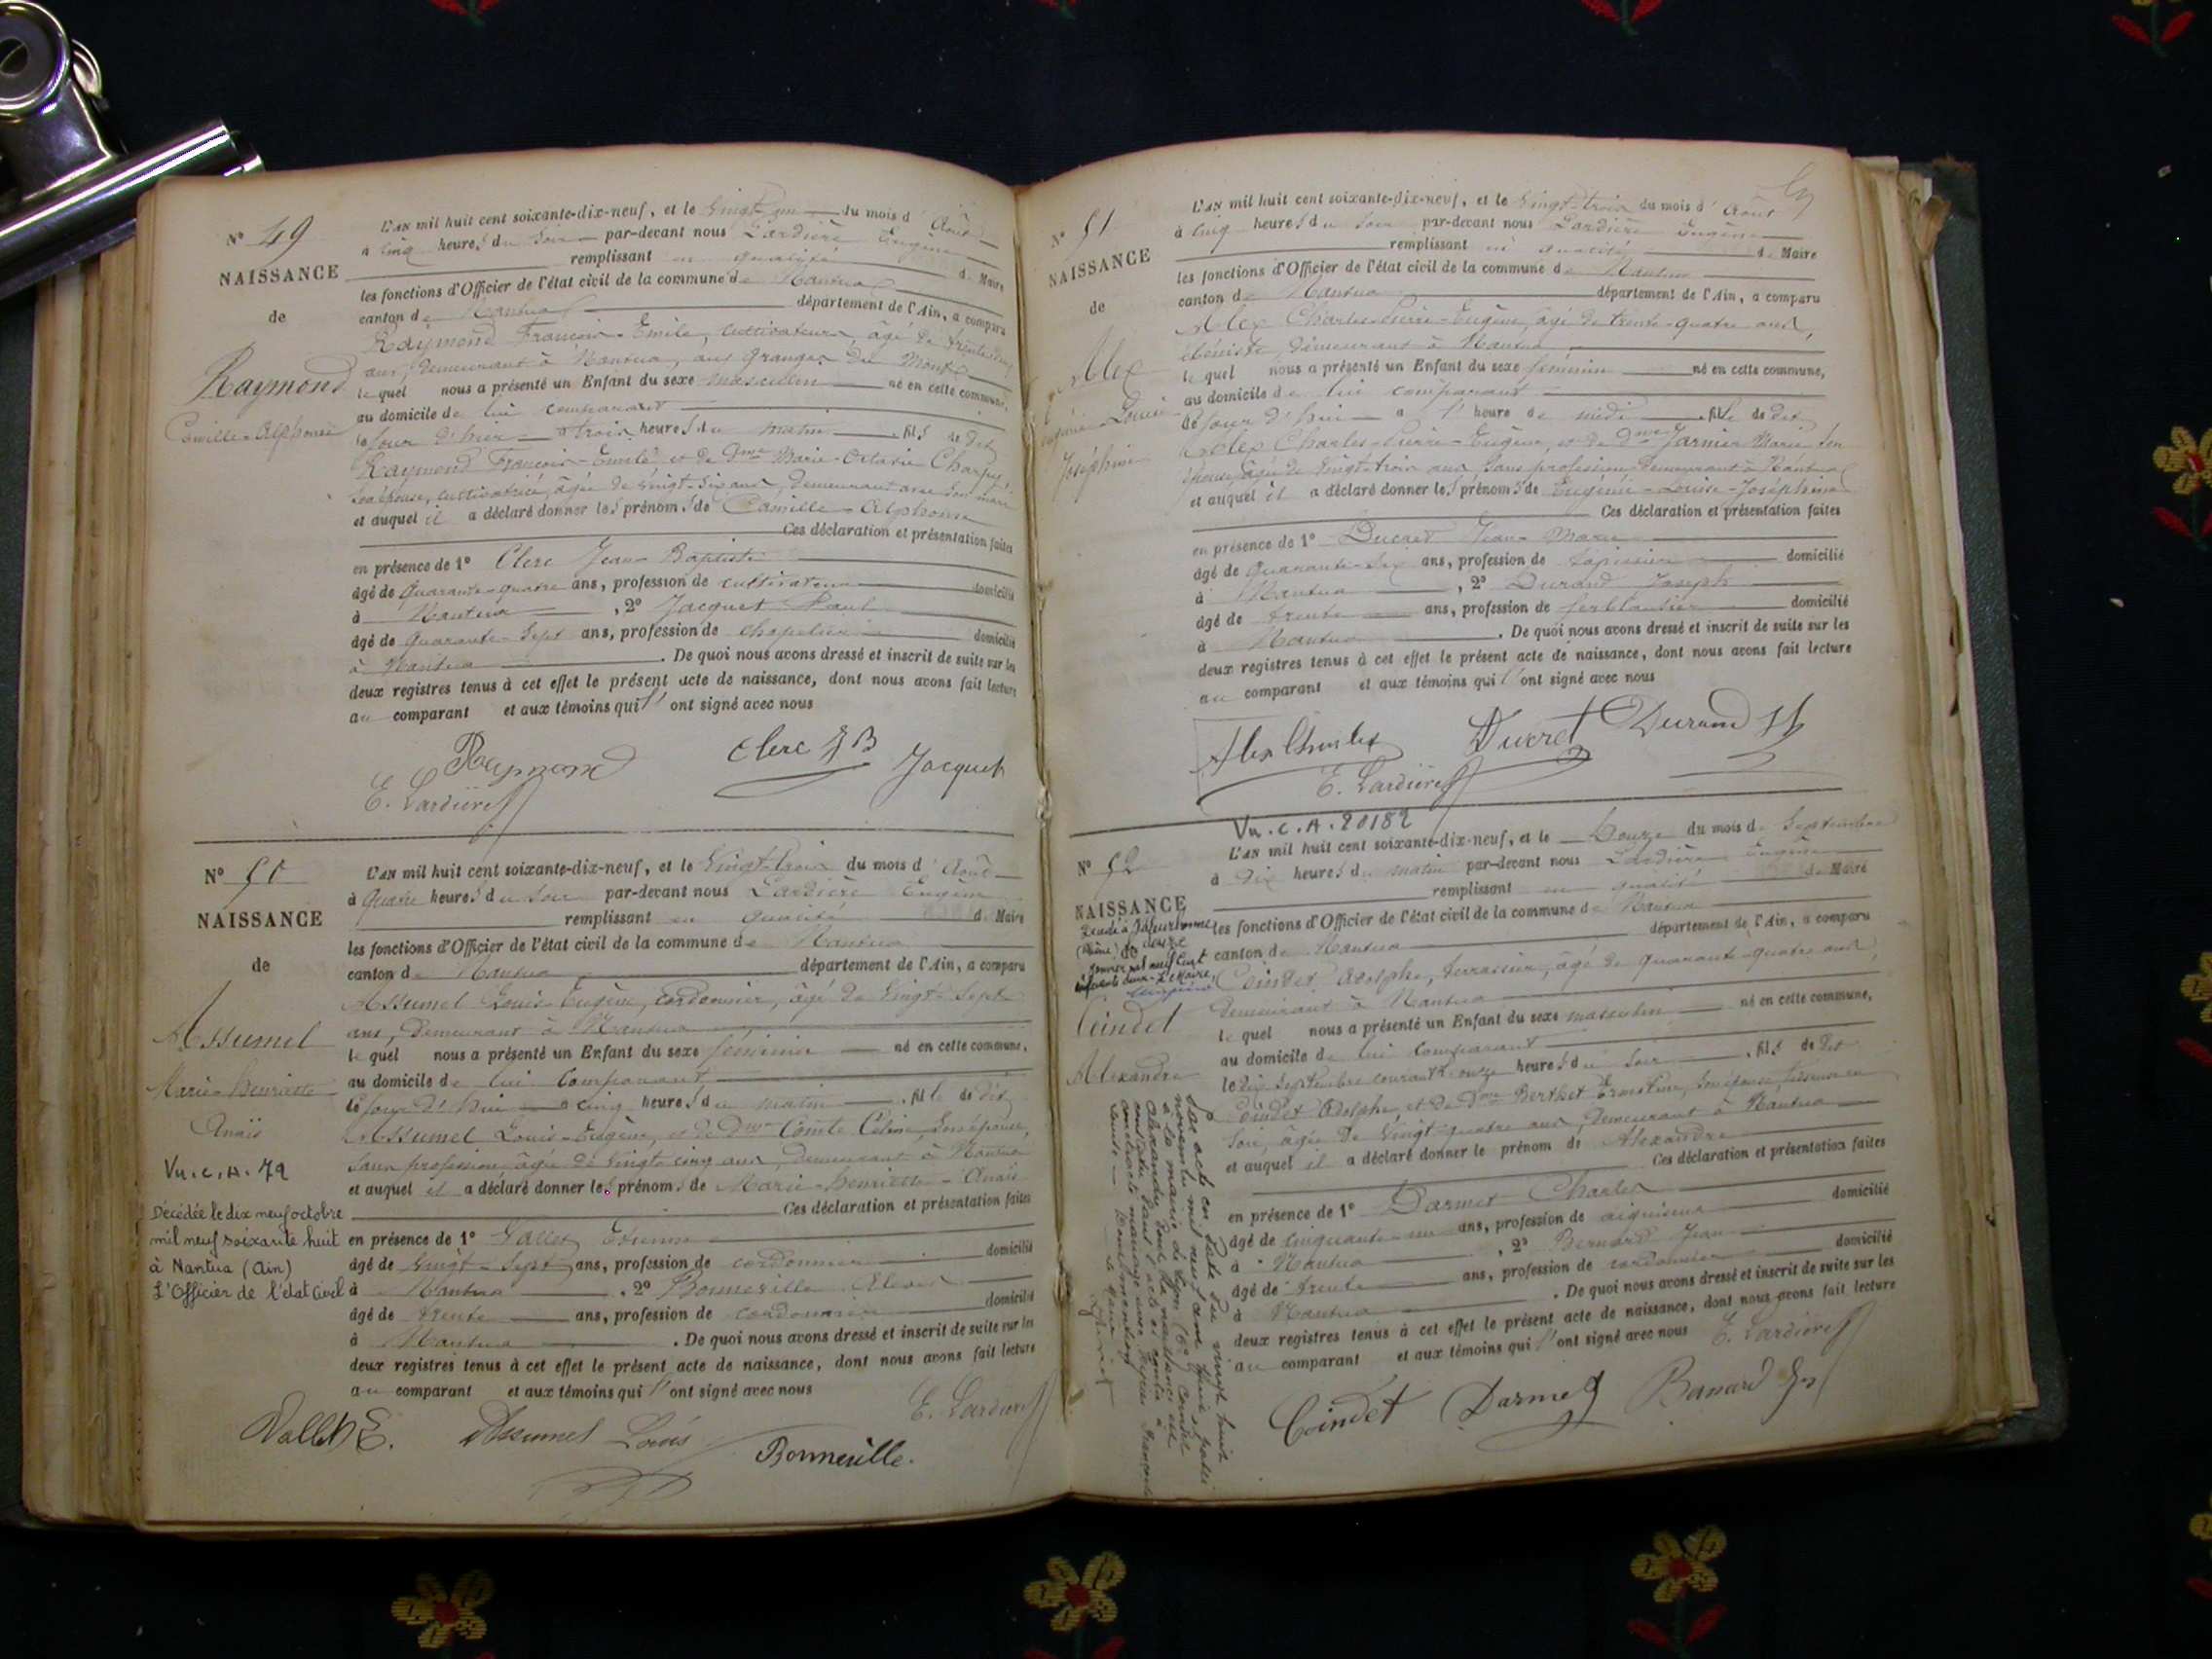 N° 49
NAISSANCE
de
Raymond
Camille-Alphonse
L'AN mil huit cent soixante-dix-neuf, et le Vingt un du mois d'Août
à cinq heures du soir par-devant nous Lardière Eugène
remplissant en qualité de Maire
les fonctions d'Officier de l'état civil de la commune de Nantua
canton de Nantua département de l'Ain, a comparu
Raymond François-Emile, cultivateur, âgé de trente
ans, demeurant à Nantua, aux Granges du Mont
lequel nous a présenté un Enfant du sexe masculin né en cette commune,
au domicile de lui comparant
le jour d'hier à trois heures du matin, fils de dit
Raymond François-Emile et de Dme Marie-Octavie Charpy
son épouse, cultivatrice, âgée de vingt-six ans, demeurant avec son mari
et auquel il a déclaré donner les prénoms de Camille-Alphonse
Ces déclaration et présentation faites
en présence de 1° Clerc Jean-Baptiste
âgé de quarante-quatre ans, profession de cultivateur domicilié
à Nantua, 2° Jacquet Paul
âgé de quarante-sept ans, profession de chapelier domicilié
à Nantua. De quoi nous avons dressé et inscrit de suite sur les
deux registres tenus à cet effet le présent acte de naissance, dont nous avons fait lecture
au comparant et aux témoins qui l'ont signé avec nous
Raymond Clerc JB Jacquet
E. Lardière
N° 50
NAISSANCE
de
Assumel
Marie-Henriette
Anaïs
Vu.C.A.79
Décédée le dix neuf octobre
mil neuf soixante huit
à Nantua (Ain)
L'Officier de l'état civil
L'AN mil huit cent soixante-dix-neuf, et le Vingt-trois du mois d'Août
à quatre heures du soir par-devant nous Lardière Eugène
remplissant en qualité de Maire
les fonctions d'Officier de l'état civil de la commune de Nantua
canton de Nantua département de l'Ain, a comparu
Assumel Louis-Eugène, cordonnier, âgé de vingt-sept
ans, demeurant à Nantua
lequel nous a présenté un Enfant du sexe féminin né en cette commune,
au domicile de lui comparant
le jour d'hui à cinq heures du matin, fille de dit
Assumel Louis-Eugène, et de Dme Comte Céline, son épouse,
sans profession âgée de vingt-cinq ans, demeurant à Nantua
et auquel il a déclaré donner les prénoms de Marie-Henriette-Anaïs
Ces déclaration et présentation faites
en présence de 1° Vallet Etienne
âgé de vingt-sept ans, profession de cordonnier domicilié
à Nantua, 2° Bonneville
âgé de trente ans, profession de cordonnier domicilié
à Nantua. De quoi nous avons dressé et inscrit de suite sur les
deux registres tenus à cet effet le présent acte de naissance, dont nous avons fait lecture
au comparant et aux témoins qui l'ont signé avec nous
E. Lardière
Vallet E. Assumel Louis Bonneville.
N° 51
NAISSANCE
de
Alex
Eugénie-Louise
Joséphine
L'AN mil huit cent soixante-dix-neuf, et le Vingt-trois du mois d'Août
à cinq heures du soir par-devant nous Lardière Eugène
remplissant en qualité de Maire
les fonctions d'Officier de l'état civil de la commune de Nantua
canton de Nantua département de l'Ain, a comparu
Alex Charles-Pierre-Eugène, âgé de trente-quatre ans,
ébéniste, demeurant à Nantua
lequel nous a présenté un Enfant du sexe féminin né en cette commune,
au domicile de lui comparant
le jour d'hui à l'heure de midi, fille de dit
Alex Charles-Pierre-Eugène, et de Dme Jarnier Marie son
épouse, âgée de vingt-trois ans sans profession demeurant à Nantua
et auquel il a déclaré donner les prénoms de Eugénie-Louise-Joséphine
Ces déclaration et présentation faites
en présence de 1° Ducret Jean-Marie
âgé de quarante-six ans, profession de tapissier domicilié
à Nantua, 2° Durand Joseph
âgé de trente ans, profession de ferblantier domicilié
à Nantua. De quoi nous avons dressé et inscrit de suite sur les
deux registres tenus à cet effet le présent acte de naissance, dont nous avons fait lecture
au comparant et aux témoins qui l'ont signé avec nous
Alex Charles Ducret Durand
E. Lardière
Vu.C.A.20182
N° 52
NAISSANCE
de
Coindet
Alexandre
L'AN mil huit cent soixante-dix-neuf, et le Douze du mois de Septembre
à dix heures du matin par-devant nous Lardière Eugène
remplissant en qualité de Maire
les fonctions d'Officier de l'état civil de la commune de Nantua
canton de Nantua département de l'Ain, a comparu
Coindet Adolphe, terrassier, âgé de quarante-quatre ans,
demeurant à Nantua
lequel nous a présenté un Enfant du sexe masculin né en cette commune,
au domicile de lui comparant
le dix Septembre courant à onze heures du soir, fils de dit
Coindet Adolphe, et de Dme Berthet Ernestine, son épouse, tisseuse en
soie, âgée de vingt-quatre ans, demeurant à Nantua
et auquel il a déclaré donner le prénom de Alexandre
Ces déclaration et présentation faites
en présence de 1° Darmet Charles
âgé de cinquante-un ans, profession de aiguiseur domicilié
à Nantua, 2° Bernard Jean
âgé de trente ans, profession de cordonnier domicilié
à Nantua. De quoi nous avons dressé et inscrit de suite sur les
deux registres tenus à cet effet le présent acte de naissance, dont nous avons fait lecture
au comparant et aux témoins qui l'ont signé avec nous E. Lardière
Coindet Darmet
Par acte en date du vingt huit
novembre mil neuf
à la mairie de Lyon (6e) Coindet
Alexandre dont la naissance est
constatée
contracté mariage avec